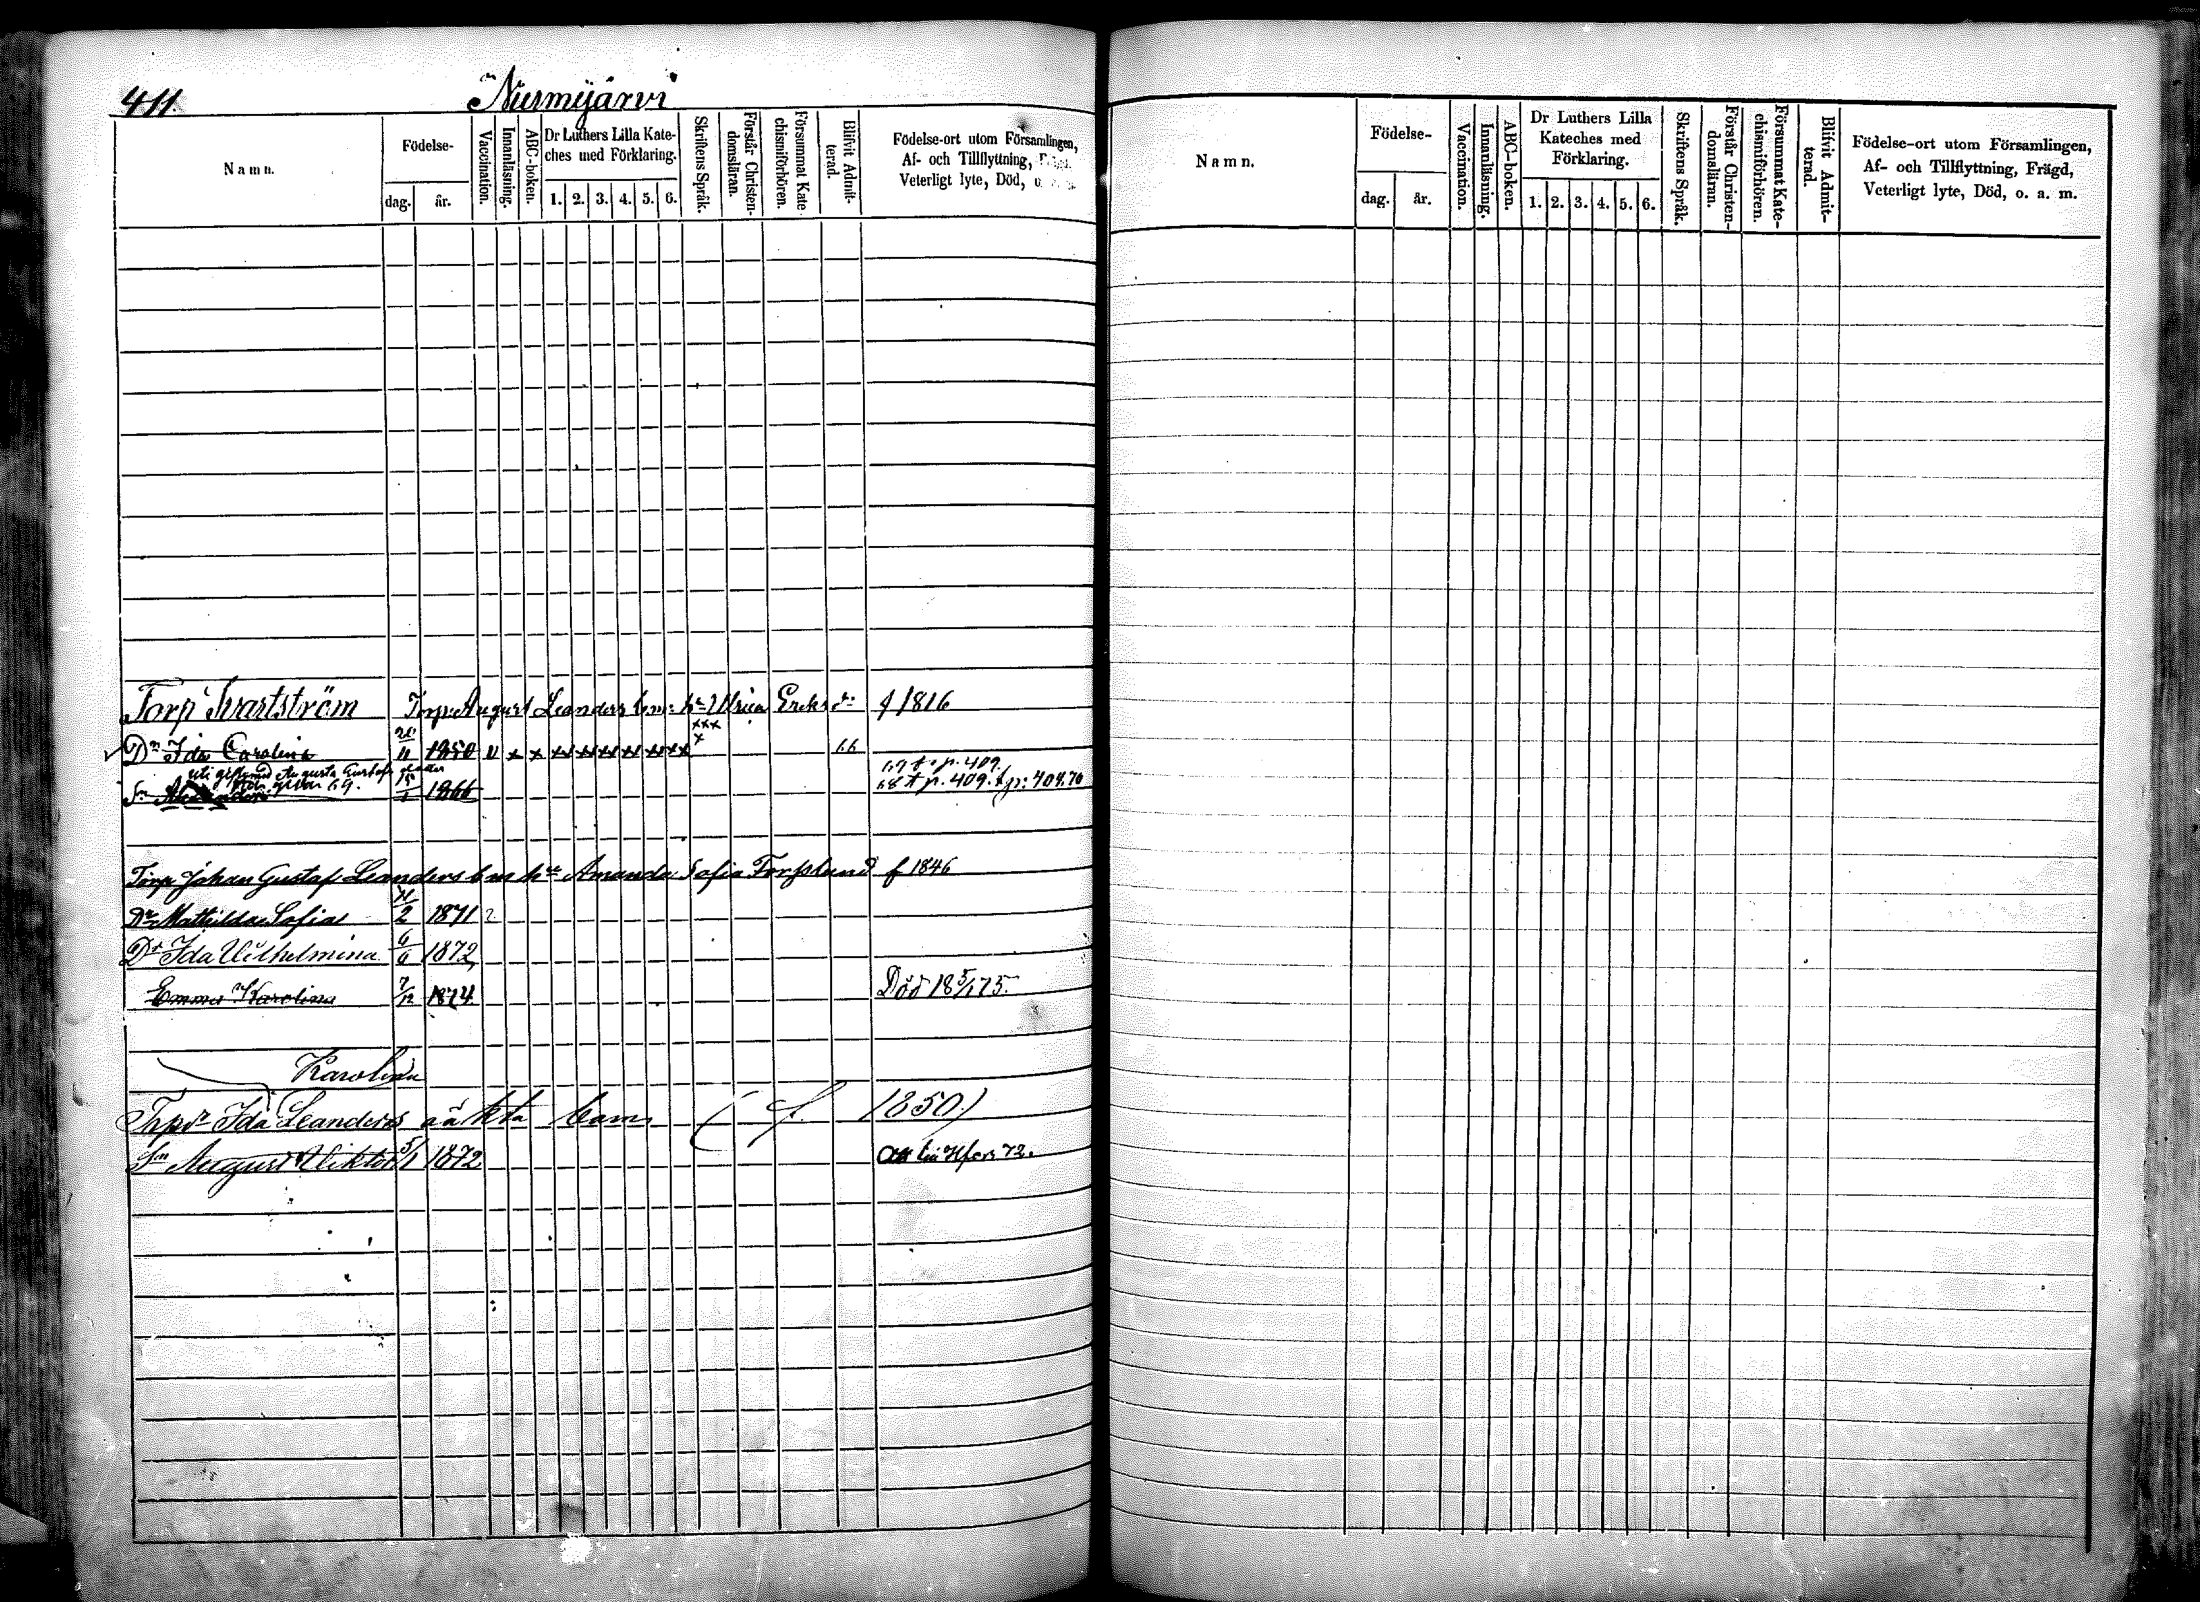 411.
Nurmijärvi
Namn.
Födelse-
dag.
år.
Vaccination.
Innanläsning.
ABC-boken.
Dr Luthers Lilla Kate-
ches med Förklaring.
1. 2. 3. 4. 5. 6.
Skriftens Språk.
Förstår Christen-
domsläran.
Försummat Kate
chismiförhören.
Blivit Admit-
terad.
Födelse-ort utom Församlingen,
Af- och Tillflyttning,
Veterligt lyte, Död, o.
Torp Svartström Torp: August Leanders b:n: Ulrica Eriks d:r f 1816
xxx
Dr Ida Carolina 1850 v x x xx xx xx xx xx xx x 66
Augusta Gustafs 69 p. 409.
Sn 1866 68 p. 409. p: 404.70
Torp Johan Gustaf Leanders b m h:u Amanda Sofia Forsslund f 1846
Dr Mathilda Sofia 2 1871 ?
Dr Ida Vilhelmina 6/6 1872
Emma Karolina 7/12 1874 Död 18 5/1 75.
Karolina
Ida Leanders oäkta barn (f. 1850)
Sn August Viktor 5/1 1872 Hfors 72.
Namn.
Födelse-
dag.
år.
Vaccination.
Innanläsning.
ABC-boken.
Dr Luthers Lilla
Kateches med
Förklaring.
1. 2. 3. 4. 5. 6.
Skriftens Språk.
Förstår Christen-
domsläran.
Försummat Kate-
chismiförhören.
Blivit Admit-
terad.
Födelse-ort utom Församlingen,
Af- och Tillflyttning, Frägd,
Veterligt lyte, Död, o. a. m.